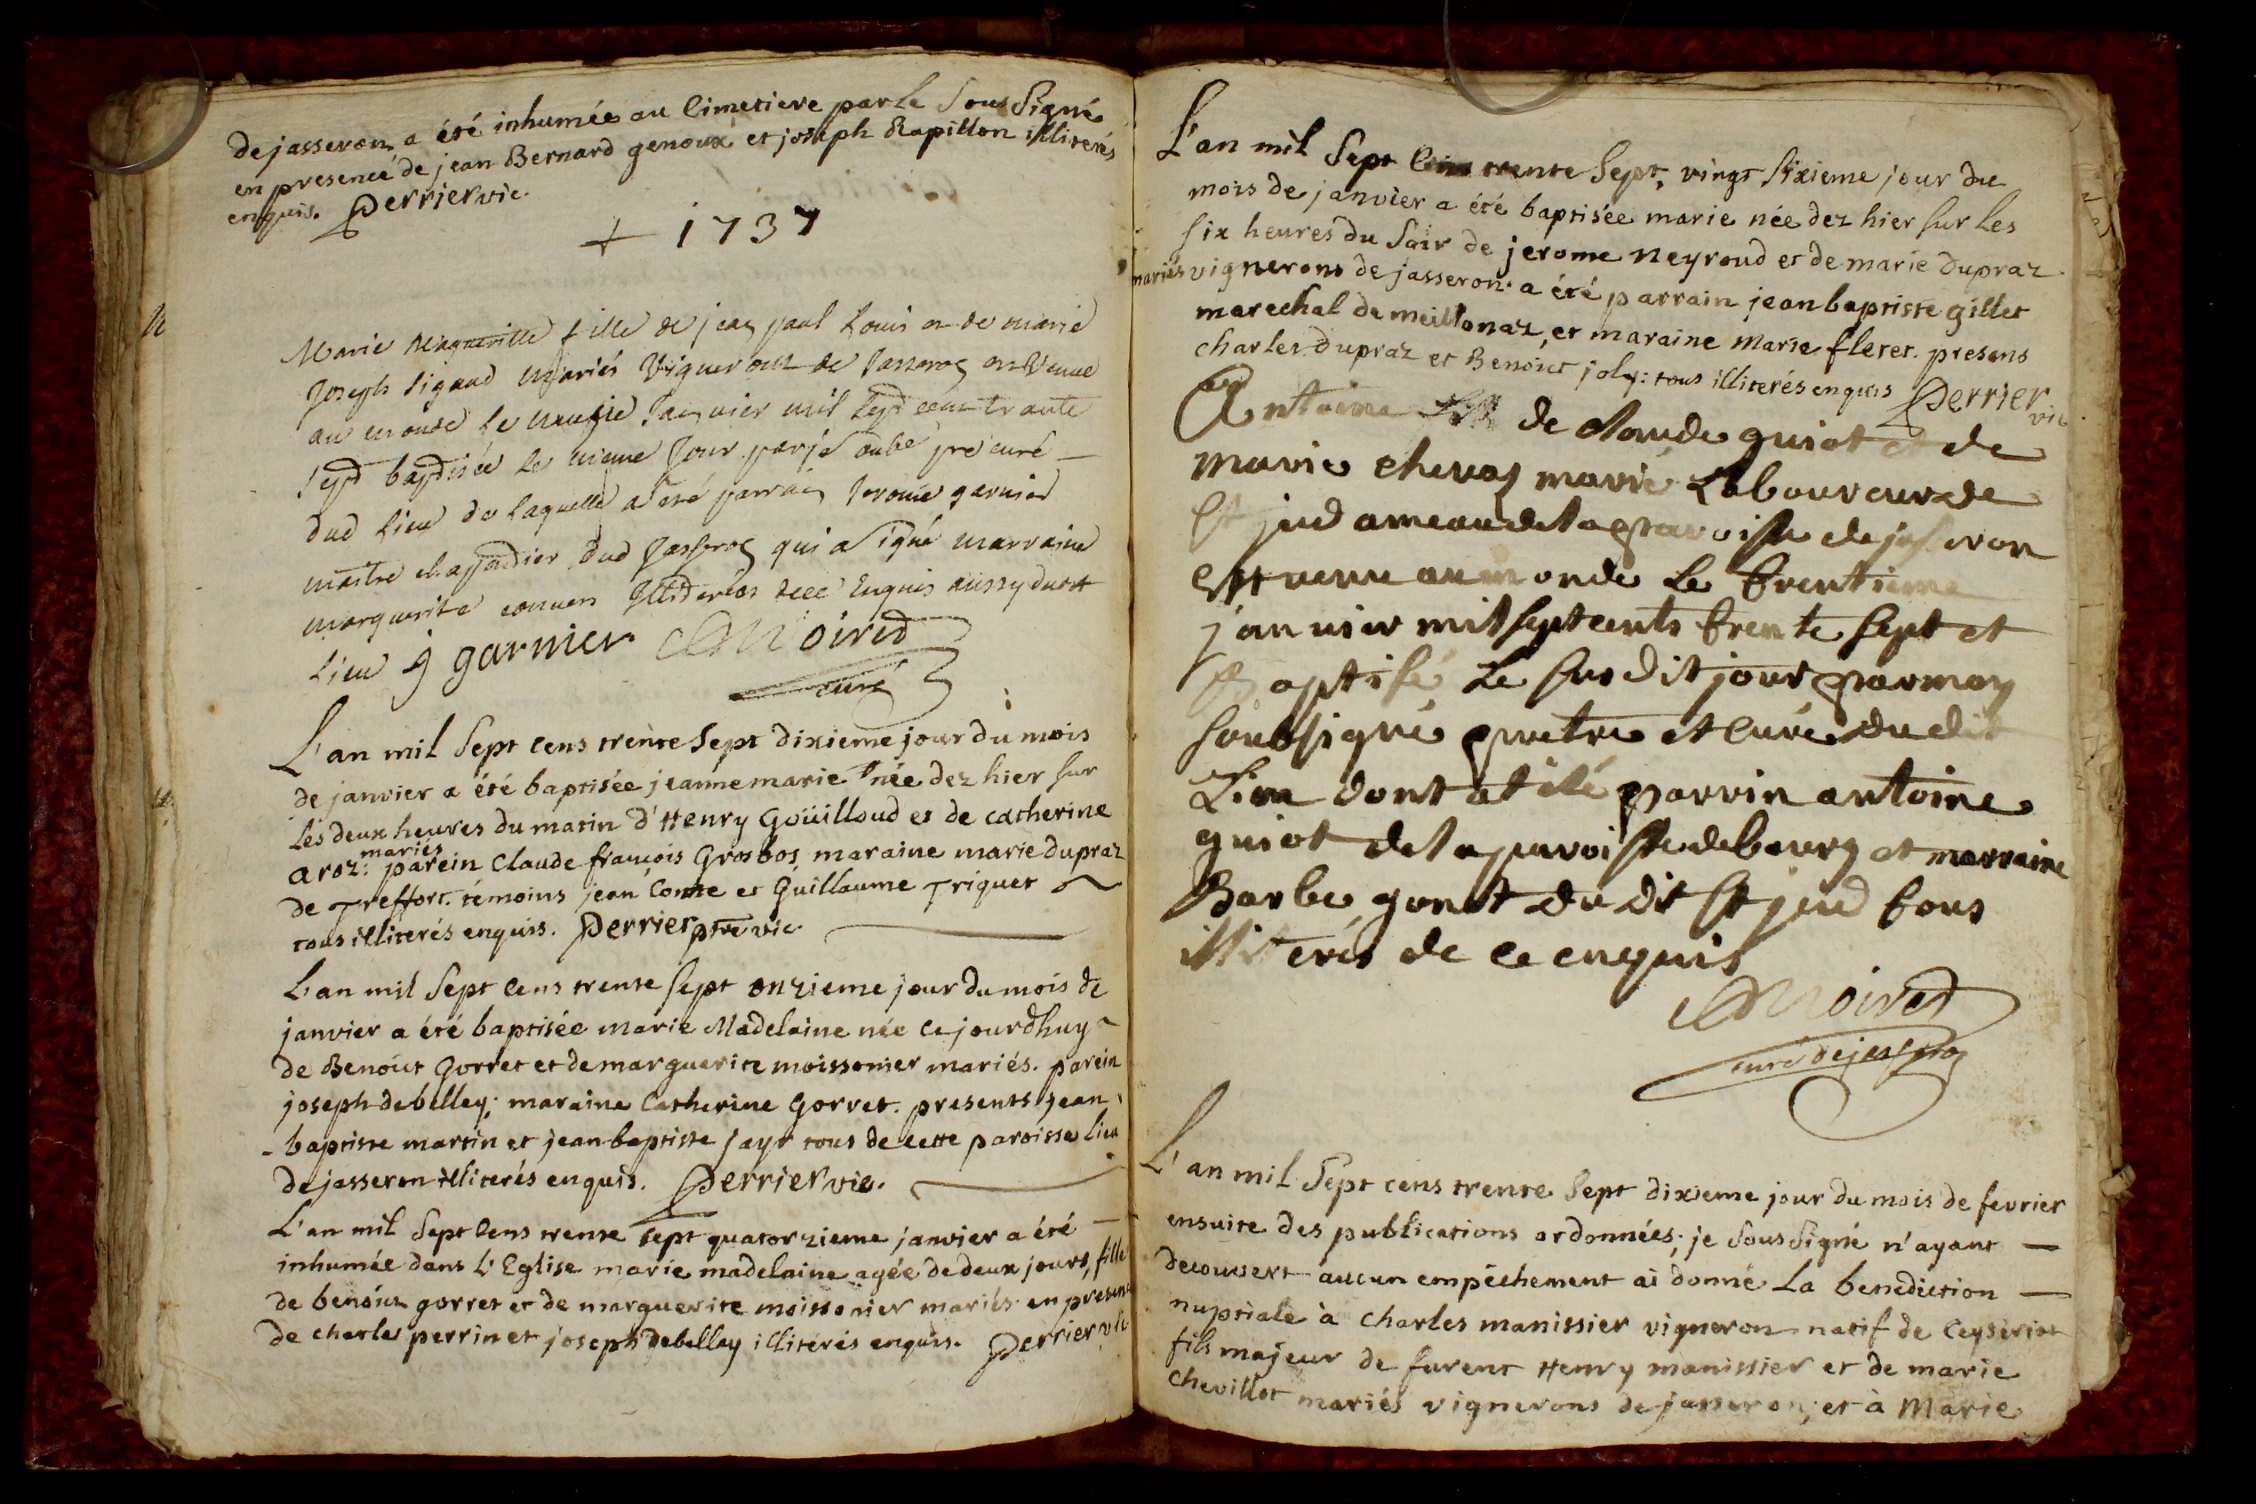 de jasseron a été inhumée au Cimetiere par le Sous Signé
en presence de jean Bernard genoux et joseph Rapillon illiterés
enquis. Perrier vic.
+ 1737
Marie fille de jean paul Louis et de marie
Joseph Sigaud mariés Vignerons de Jasseron est venue
au monde le Janvier mil sept cent trante
sept baptisée le meme Jour par je pre curé
dud Lieu de laquelle a eté parrain Jerome garnier
maitre dud Jasseron qui a signé marraine
marguerite Illiterées Enquis aussy dudt
Lieu j garnier Noired
curé
L'an mil Sept Cens trente Sept dixieme jour du mois
de janvier a été baptisée jeanne marie née dez hier sur
les deux heures du matin d'Henry Goüilloud et de catherine
mariés
aroz: parein Claude françois Grosbos maraine marie dupraz
de Treffort. témoins jean Comte et Guillaume Triquet
tous illiterés enquis. Perrier ptre vic
L'an mil Sept Cens trente Sept onzieme jour du mois de
janvier a été baptisée marie Madelaine née ce jourdhuy
de Benoict Gorret et de marguerite moissonier mariés. parein
joseph debelley; maraine Catherine Gorret. presents jean
-baptiste martin et jean baptiste jayr tous de cette paroisse lieu
de jasseron illiterés enquis. Perrier vic.
L'an mil Sept Cens trente sept quatorzieme janvier a été
inhumée dans l'Eglise marie madelaine agée de deux jours, fille
de benoict gorret et de marguerite moissonier mariés en presence
de charles perrin et joseph debelley illiterés enquis. Perrier vic
L'an mil Sept Cens trente Sept, vingt Sixieme jour du
mois de janvier a été baptisée marie née dez hier sur les
six heures du Soir de jerome Neyroud et de marie dupraz
mariés vignerons de jasseron. a été parrain jean baptiste gillet
marechal de meillonaz, et maraine Marie fleret. presens
charles dupraz et Benoict joly: tous illiterés enquis Perrier
vic
Antoine de Claude guiot et de
marie mariés Laboureur de
St jud ameau de la paroisse de jasseron
est venu au monde Le trentieme
janvier mil sept cents trente sept et
Baptisé Le sus dit jour par moy
soubsigné pretre et Curé du dit
Lieu dont at été parrin antoine
guiot de la paroisse de bourg et marraine
Barbe du dit St jud tous
illiterés de ce enquis
Noired
curé de jasseron
L'an mil Sept cens trente Sept dixieme jour du mois de fevrier
ensuite des publications ordonnées; je Sous Signé n'ayant
decouvert aucun empêchement ai donné La benediction
nuptiale à Charles manissier vigneron natif de Ceyseriat
fils majeur de furent Henry manissier et de marie
Chevillot mariés vignerons de jasseron; et à Marie